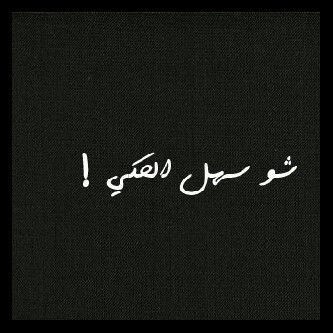 شو سهل الحكي !